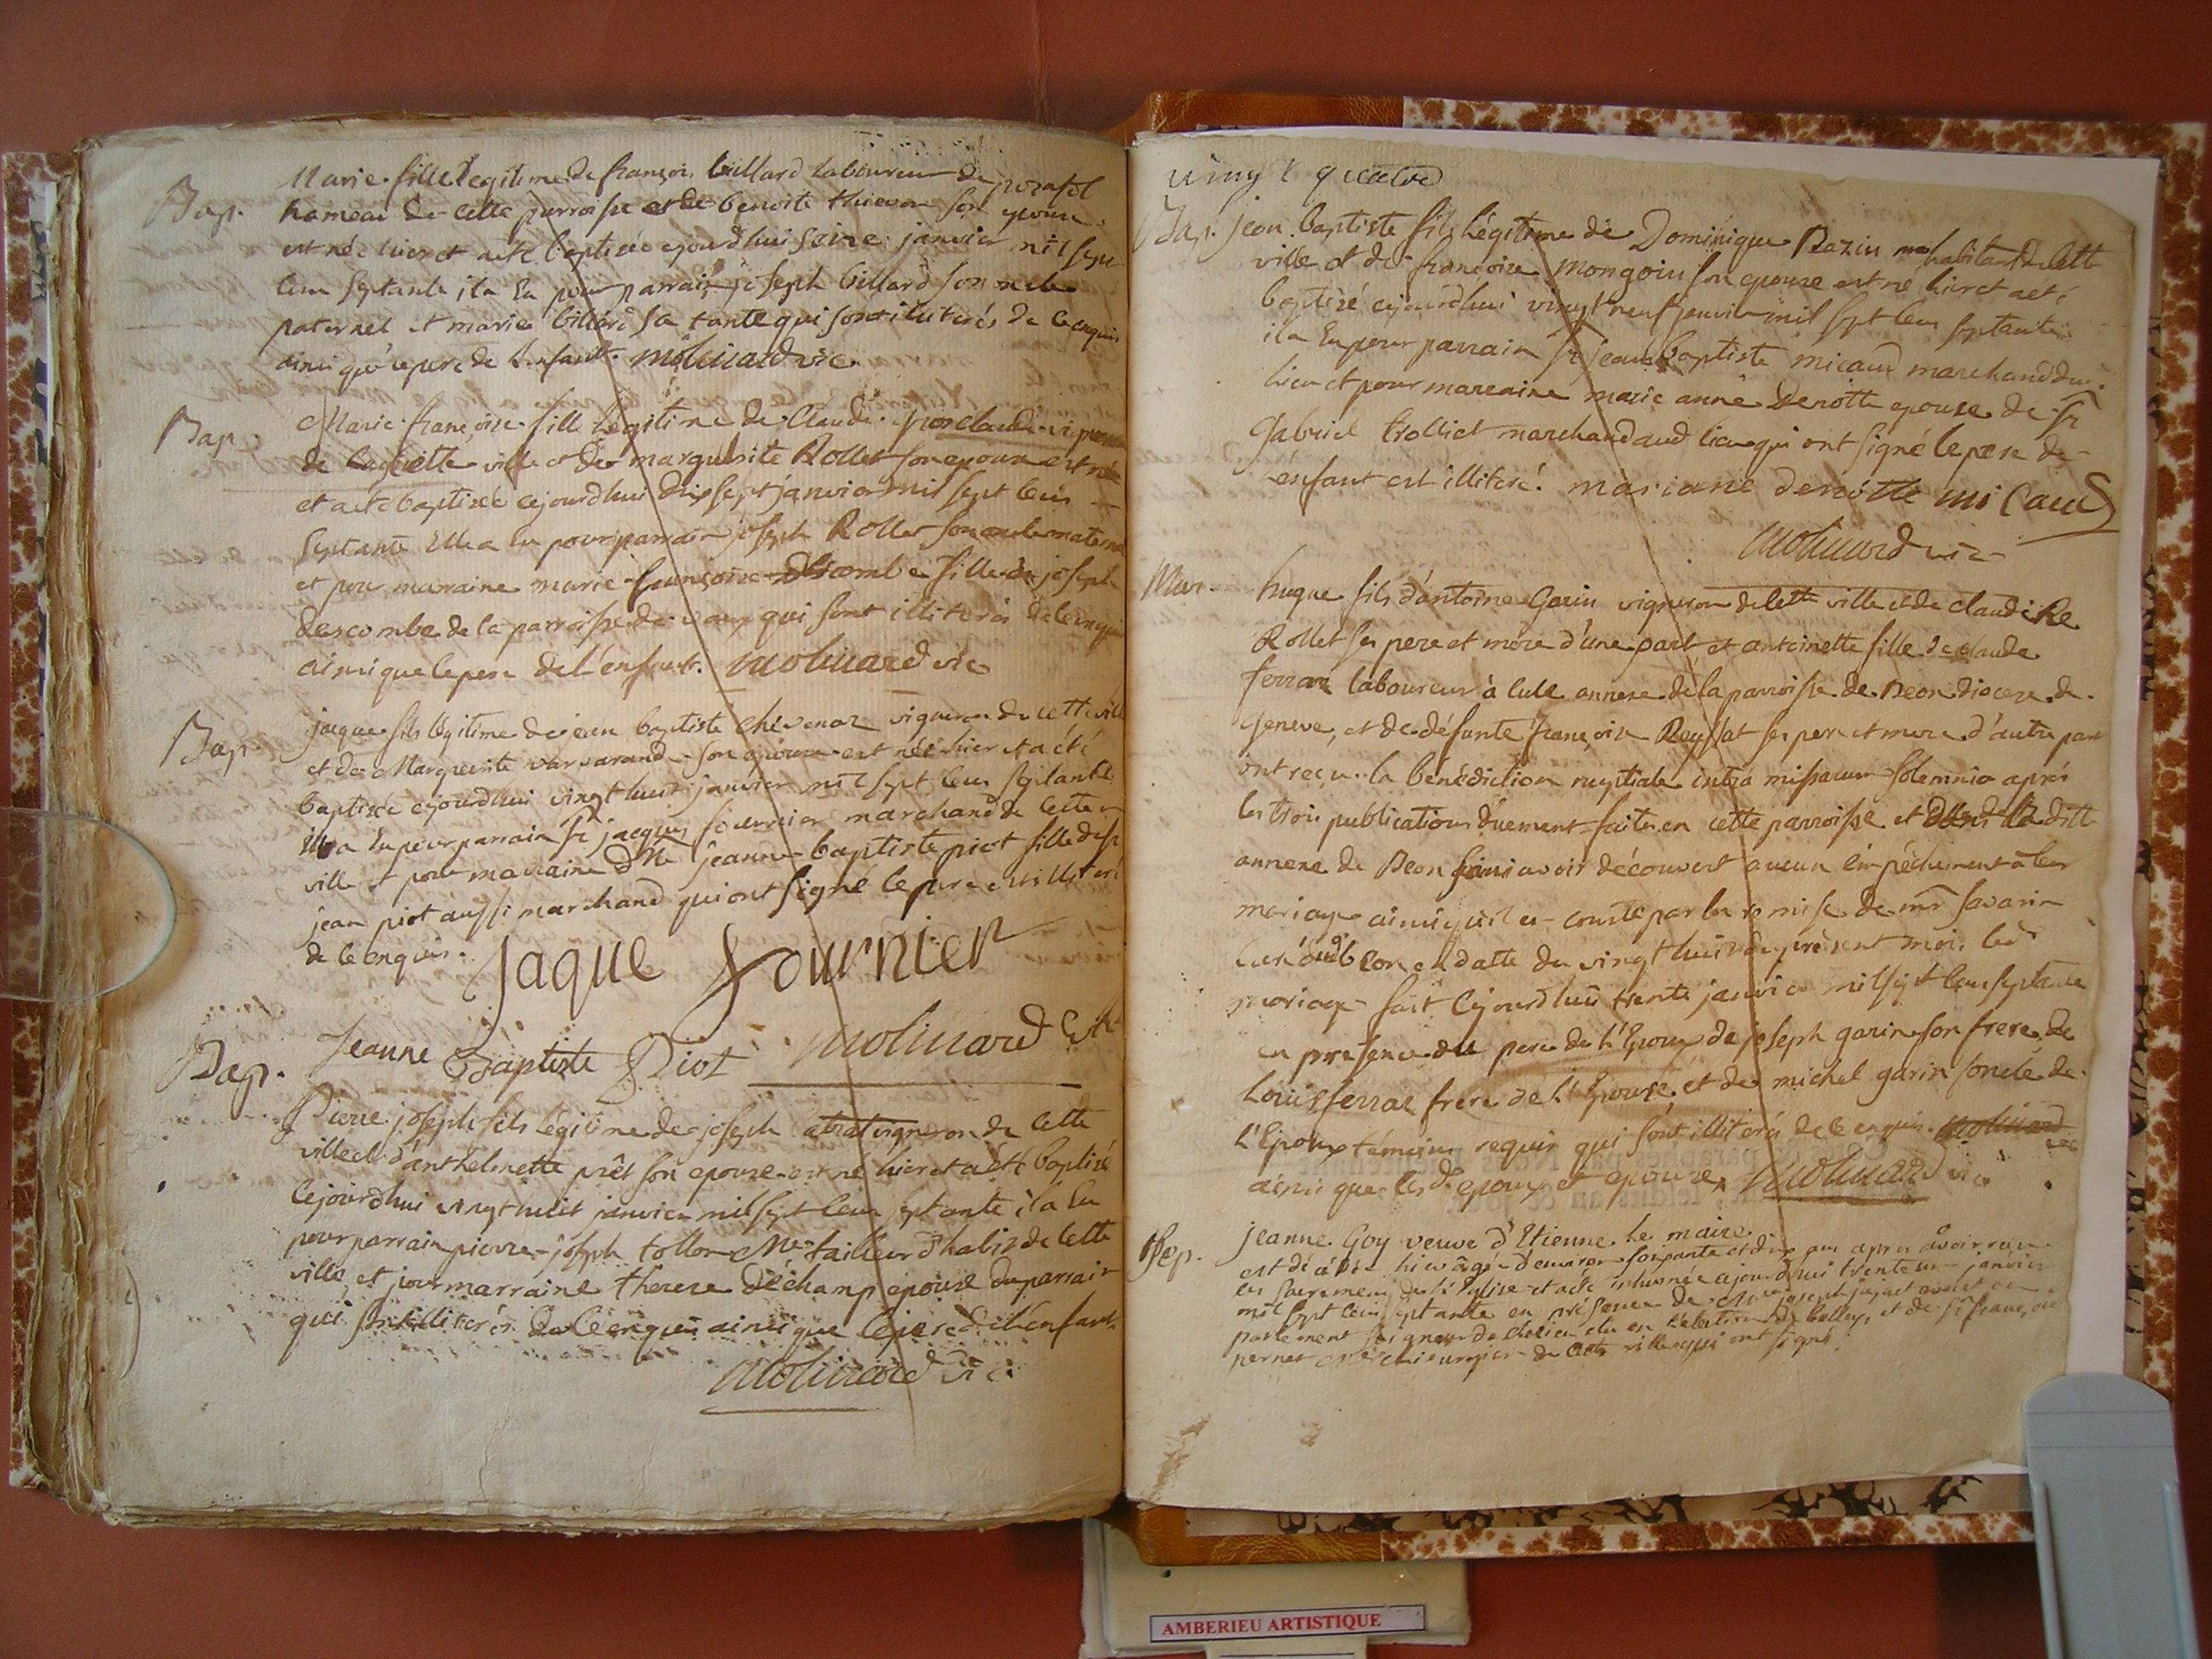 Bap. Marie fille legitime de françois billard laboureur de
hameau de cette parroisse et de benoite thievon son epouse
est née hier et a eté baptisée cejourd'hui seize janvier mil sept
cent septante il a Eu pour parrain joseph billard son oncle
paternel et marie billard sa tante qui sont illiterés de ce enquis
ainsi que le pere de l'enfant. Molinard vic.
Bap. Marie françoise fille legitime de Claude
de cette ville et de marguerite Rollet son epouse est née
et a eté baptisée cejourdhui dix sept janvier mil sept cens
septante Elle a Eu pour parrain joseph Rollet son oncle maternel
et pour marraine marie françoise descombe fille de joseph
descombe de la parroisse de vaux qui sont illiterés de ce enquis
ainsi que le pere de l'enfant. Molinard vic
Bap. jaque fils legitime de jean baptiste chevenaz vigneron de cette ville
et de Marguerite varvarand son epouse est né hier et a eté
baptisée cejourdhui vingt huit janvier mil sept cens septante
il a Eu pour parrain sr jacques fournier marchand de cette
ville et pour marraine dlle jeanne baptiste piot fille de sr
jean piot aussi marchand qui ont signé le pere est illiteré
de ce enquis.
Jaque Fournier
Jeanne Baptiste Piot Molinard vic
Bap.
Pierre joseph fils légitime de joseph vigneron de cette
ville et d'anthelmette prêt son epouse est né hier et a eté baptisé
Cejourdhui vingt huit janvier mil sept cens septante il a Eu
pour parrain pierre joseph tollon Me tailleur d'habits de cette
ville, et pour marraine therese déchamp epouse du parrain
qui sont illiterés de ce enquis ainsi que le pere de l'enfant.
Molinard vic.
vingt quatre
Bap. jean baptiste fils légitime de Dominique Bazin habitant de cette
ville et de françoise mongoin son epouse est né hier et a eté
baptisé cejourdhui vingt neuf janvier mil sept cens septante
il a Eu pour parrain sr jean baptiste micaud marchand dud.
lieu et pour marraine marie anne Derotte epouse de sr
Gabriel trolliet marchand aud lieu qui ont signé le pere de
l'enfant est illiteré. mariane derotte micaud
Molinard vic
Mar. hugue fils d'antoine Garin vigneron de cette ville et de claudine
Rollet ses pere et mere d'une part et antoinette fille de claude
ferraz laboureur à lule annexe de la parroisse de Beon diocese de
Geneve, et de défunte françoise Reyssat ses pere et mere d'autre part
ont reçu la bénédiction nuptiale intra missarum solemnia aprés
les trois publications düement faites en cette parroisse et dans ladite
annexe de Beon sans avoir découvert aucun empéchement à leur
mariage ainsi qu'il en conste par la remise de mr savarin
curé dud beon en datte du vingt huit du présent mois led
mariage fait cejourd'hui trente janvier mil sept cens septante
en presence du pere de l'Epoux de joseph garin son frere de
Louis ferraz frere de l'Epouse, et de michel garin son
l'Epoux témoins requis qui sont illiterés de ce enquis Molinard vic
ainsi que les d. epoux et epouse, Molinard vic
Sep. jeanne Goy veuve d'Etienne le maire
est décédée hier âgée d'environ soixante et dix ans apres avoir reçu
les sacremens de l'Eglise et a eté inhumée cejourdhui trente un janvier
mil sept cens septante en présence de joseph jujat avocat en
parlement seigneur de elu en l'election de belley, et de sr françois
pernet me chirurgien de cette ville qui ont signé.
AMBERIEU ARTISTIQUE